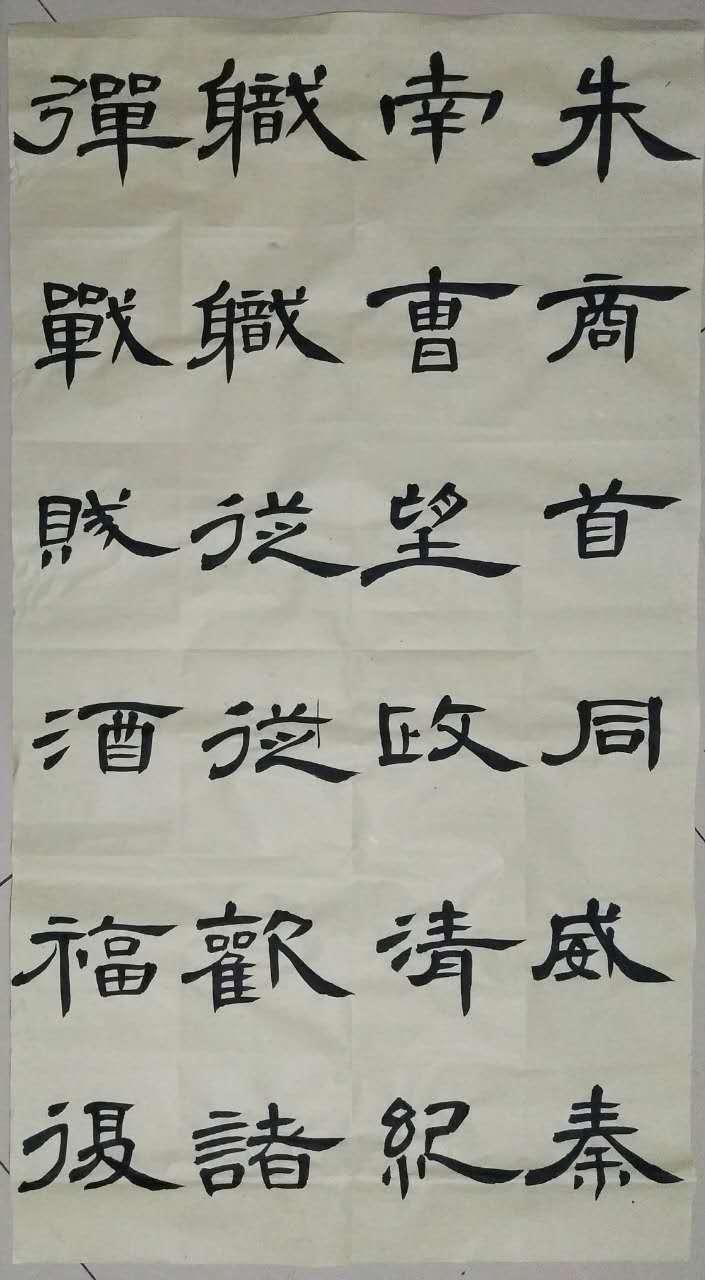 朱商首同威秦
南曹望政清紀
職職從從歡諸
彈戰賊酒福復